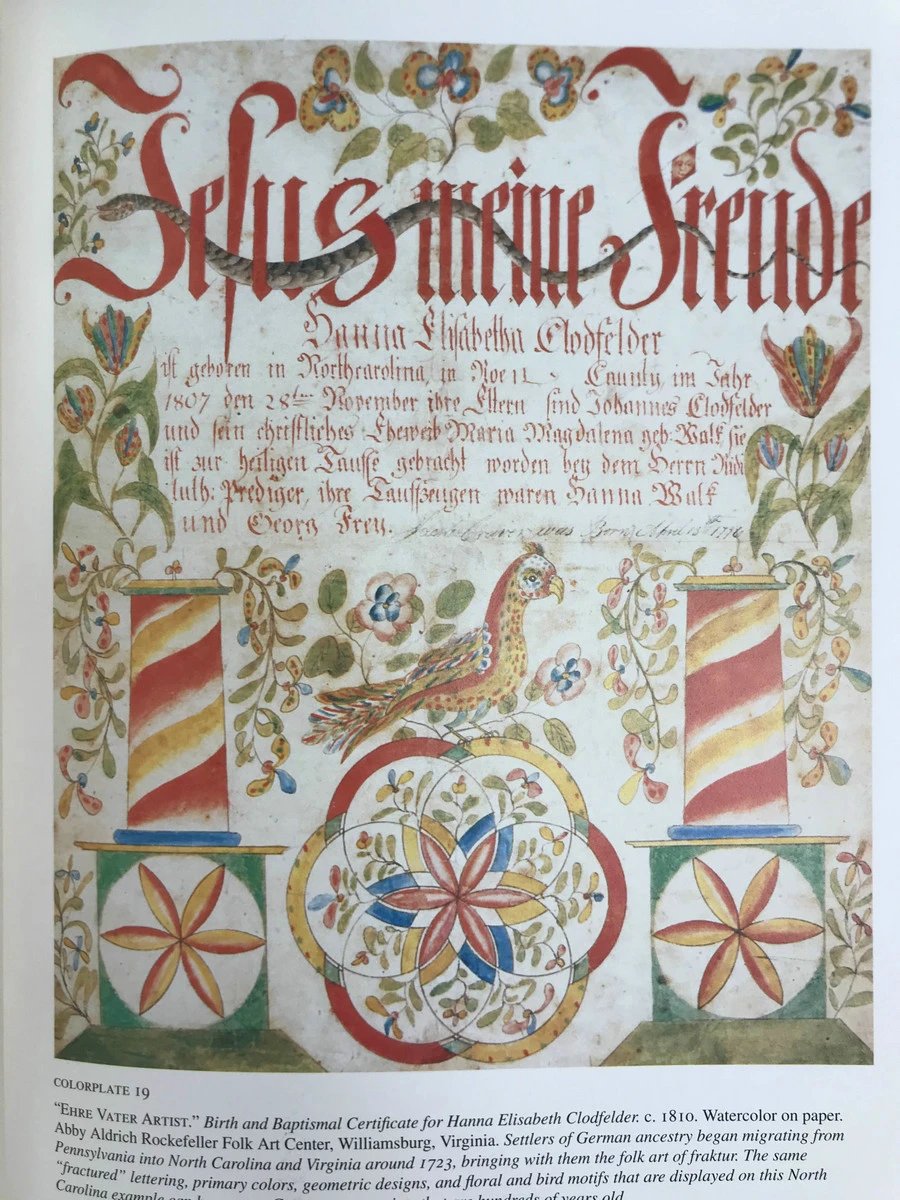 Jesus meine Freude
Hanna Elisabetha Clodfelder
ist geboren in Northcarolina, in Roen Caunty im Jahr
1807 den 28ten November ihre Eltern sind Johannes Clodfelder
und sein christliches Eheweib Maria Magdalena geb: Walk sie
ist zur heiligen Tauffe gebracht worden bey dem Herrn
luth: Prediger, ihre Tauffzeugen waren Hanna Walk
und Georg Frey. was Born 1778
COLORPLATE 19
"EHRE VATER ARTIST." Birth and Baptismal Certificate for Hanna Elisabeth Clodfelder. c. 1810. Watercolor on paper.
Abby Aldrich Rockefeller Folk Art Center, Williamsburg, Virginia. Settlers of German ancestry began migrating from
Pennsylvania into North Carolina and Virginia around 1723, bringing with them the folk art of fraktur. The same
"fractured" lettering, primary colors, geometric designs, and floral and bird motifs that are displayed on this North
Carolina example can that are hundreds of years old.